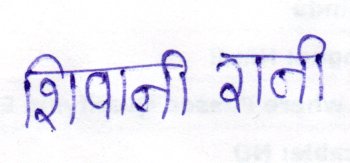 शिवानी रानी